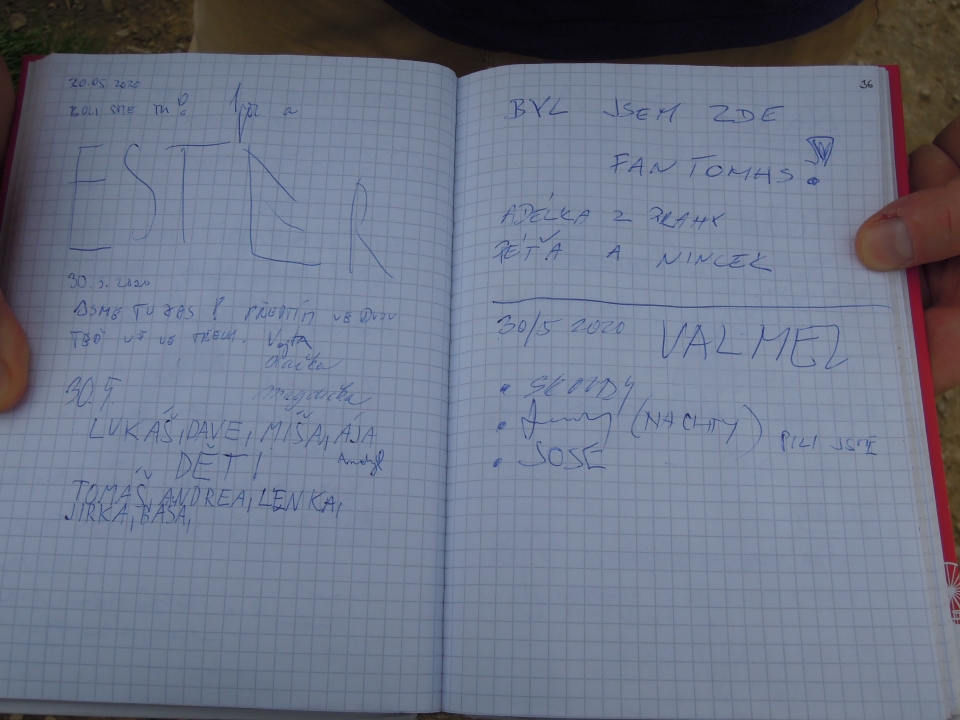 20.05.2020
BYLI SME TU! a
ESTER
30.5.2020
JSME TU ZAS! PŘEDTÍM VE DVOU
TEĎ UŽ VE TŘECH. Vojta
Kačka
Magdička
30.5.
LUKÁŠ, DAVE, MÍŠA, ÁJA
DĚTI
TOMÁŠ, ANDREA, LENKA,
JIRKA, BÁSA,
36
BYL JSEM ZDE
FANTOMAS!
ADÉLKA Z PRAHY
PÉŤA A NINCEK
30/5 2020 VALMEZ
• (NACHTY) PILI JSME
• JOSE